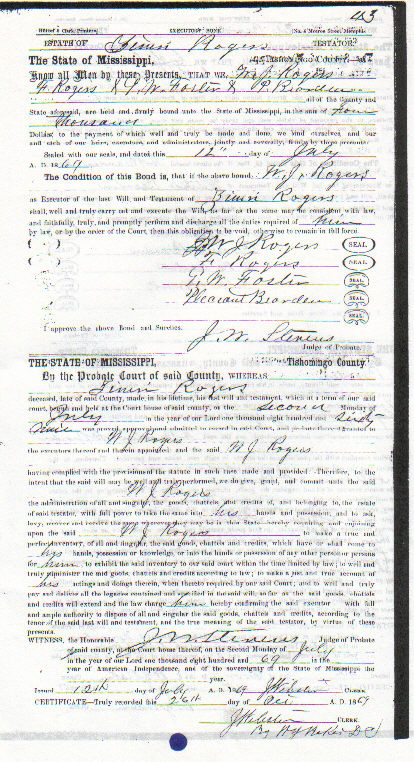 43
EXECUTORS' BOND
ESTATE OF Simri Rogers TESTATOR
The State of Mississippi,
Know all Men by these Presents, THAT WE, W. J. Rogers
F. Rogers & G. W. Foster & P. Bearden
all of the County and
State aforesaid, are held and firmly bound unto the State of Mississippi, in the sum of Four
Thousand
Dollars; to the payment of which well and truly be made and done, we bind ourselves, and our
and each of our heirs, executors, and administrators, jointly and severally, firmly by these presents:
Sealed with our seals, and dated this 12th day of July
A. D. 1869
The Condition of this Bond is, that if the above bound W. J. Rogers
as Executor of the last Will and Testament of Simri Rogers
shall, well and truly carry out and execute the Will, so far as the same may be consistent with law,
and faithfully, truly, and promptly perform and discharge all the duties required of him
by law, or by the order of the Court, then this obligation to be void, otherwise to remain in full force.
W J Rogers SEAL
F. Rogers SEAL
G. W. Foster SEAL
Pleasant Bearden SEAL
SEAL
I approve the above Bond and Sureties.
J. W. Stevens
Judge of Probate.
THE STATE OF MISSISSIPPI, Tishomingo County.
By the Probate Court of said County, WHEREAS
Simri Rogers
deceased, late of said County, made, in his lifetime, his last will and testament, which at a term of our said
court, begun and held at the Court house of said county, on the Second Monday of
July in the year of our Lord one thousand eight hundred and Sixty
Nine was proved, approved and admitted to record in said Court, and probate thereof granted to
W J Rogers
the executors thereof and therein appointed; and the said W J Rogers
having complied with the provisions of the statute in such case made and provided: Therefore, to the
intent that the said will may be well and truly performed, we do give, grant, and commit unto the said
W J Rogers
the administration of all and singular, the goods, chattels and credits of, and belonging to, the estate
of said testator, with full power to take the same into his hands and possession, and to ask,
levy, recover and receive the same wheresoever may be in this State hereby requiring and enjoining
upon the said W J Rogers to make a true and
perfect inventory, of all and singular, the said goods, chattels and credits, which have or shall come to
his hands, possession or knowledge, or into the hands or possession of any other person or persons
for him to exhibit the said inventory to our said court within the time limited by law; to well and
truly administer the said goods, chattels and credits according to law; to make a just and true account of
his actings and doings therein, when thereto required by our said Court; and to well and truly
pay and deliver all the legacies contained and specified in the said will, so far as the said goods, chattels
and credits will extend and the law charge him hereby confirming the said executor with full
and ample authority to dispose of all and singular the said goods, chattels and credits, according to the
tenor of the said last will and testament, and the true meaning of the said testator, by virtue of these
presents.
WITNESS, the Honorable J W Stevens Judge of Probate
of said county, at the Court house thereof, on the Second Monday of July
in the year of our Lord one thousand eight hundred and 69 in the
year of American Independence, and of the sovereignty of the State of Mississippi the
year.
Issued 12th day of July A. D. 1869 CLERK.
CERTIFICATE—Truly recorded this 26th day of A. D. 1869
CLERK
By D C